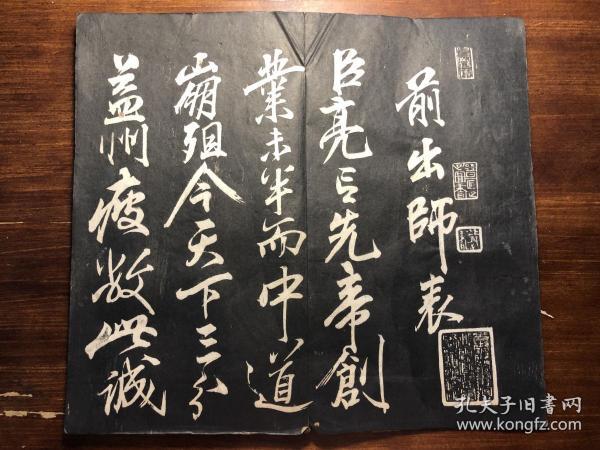 前出師表
臣亮言先帝創
業未半而中道
崩殂今天下三分
益州疲敝此誠
孔夫子旧书网
www.kongfz.com